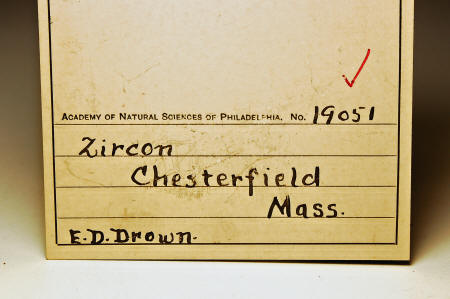 Academy of Natural Sciences of Philadelphia. No. 19051
Zircon
Chesterfield
Mass.
E.D. Drown.